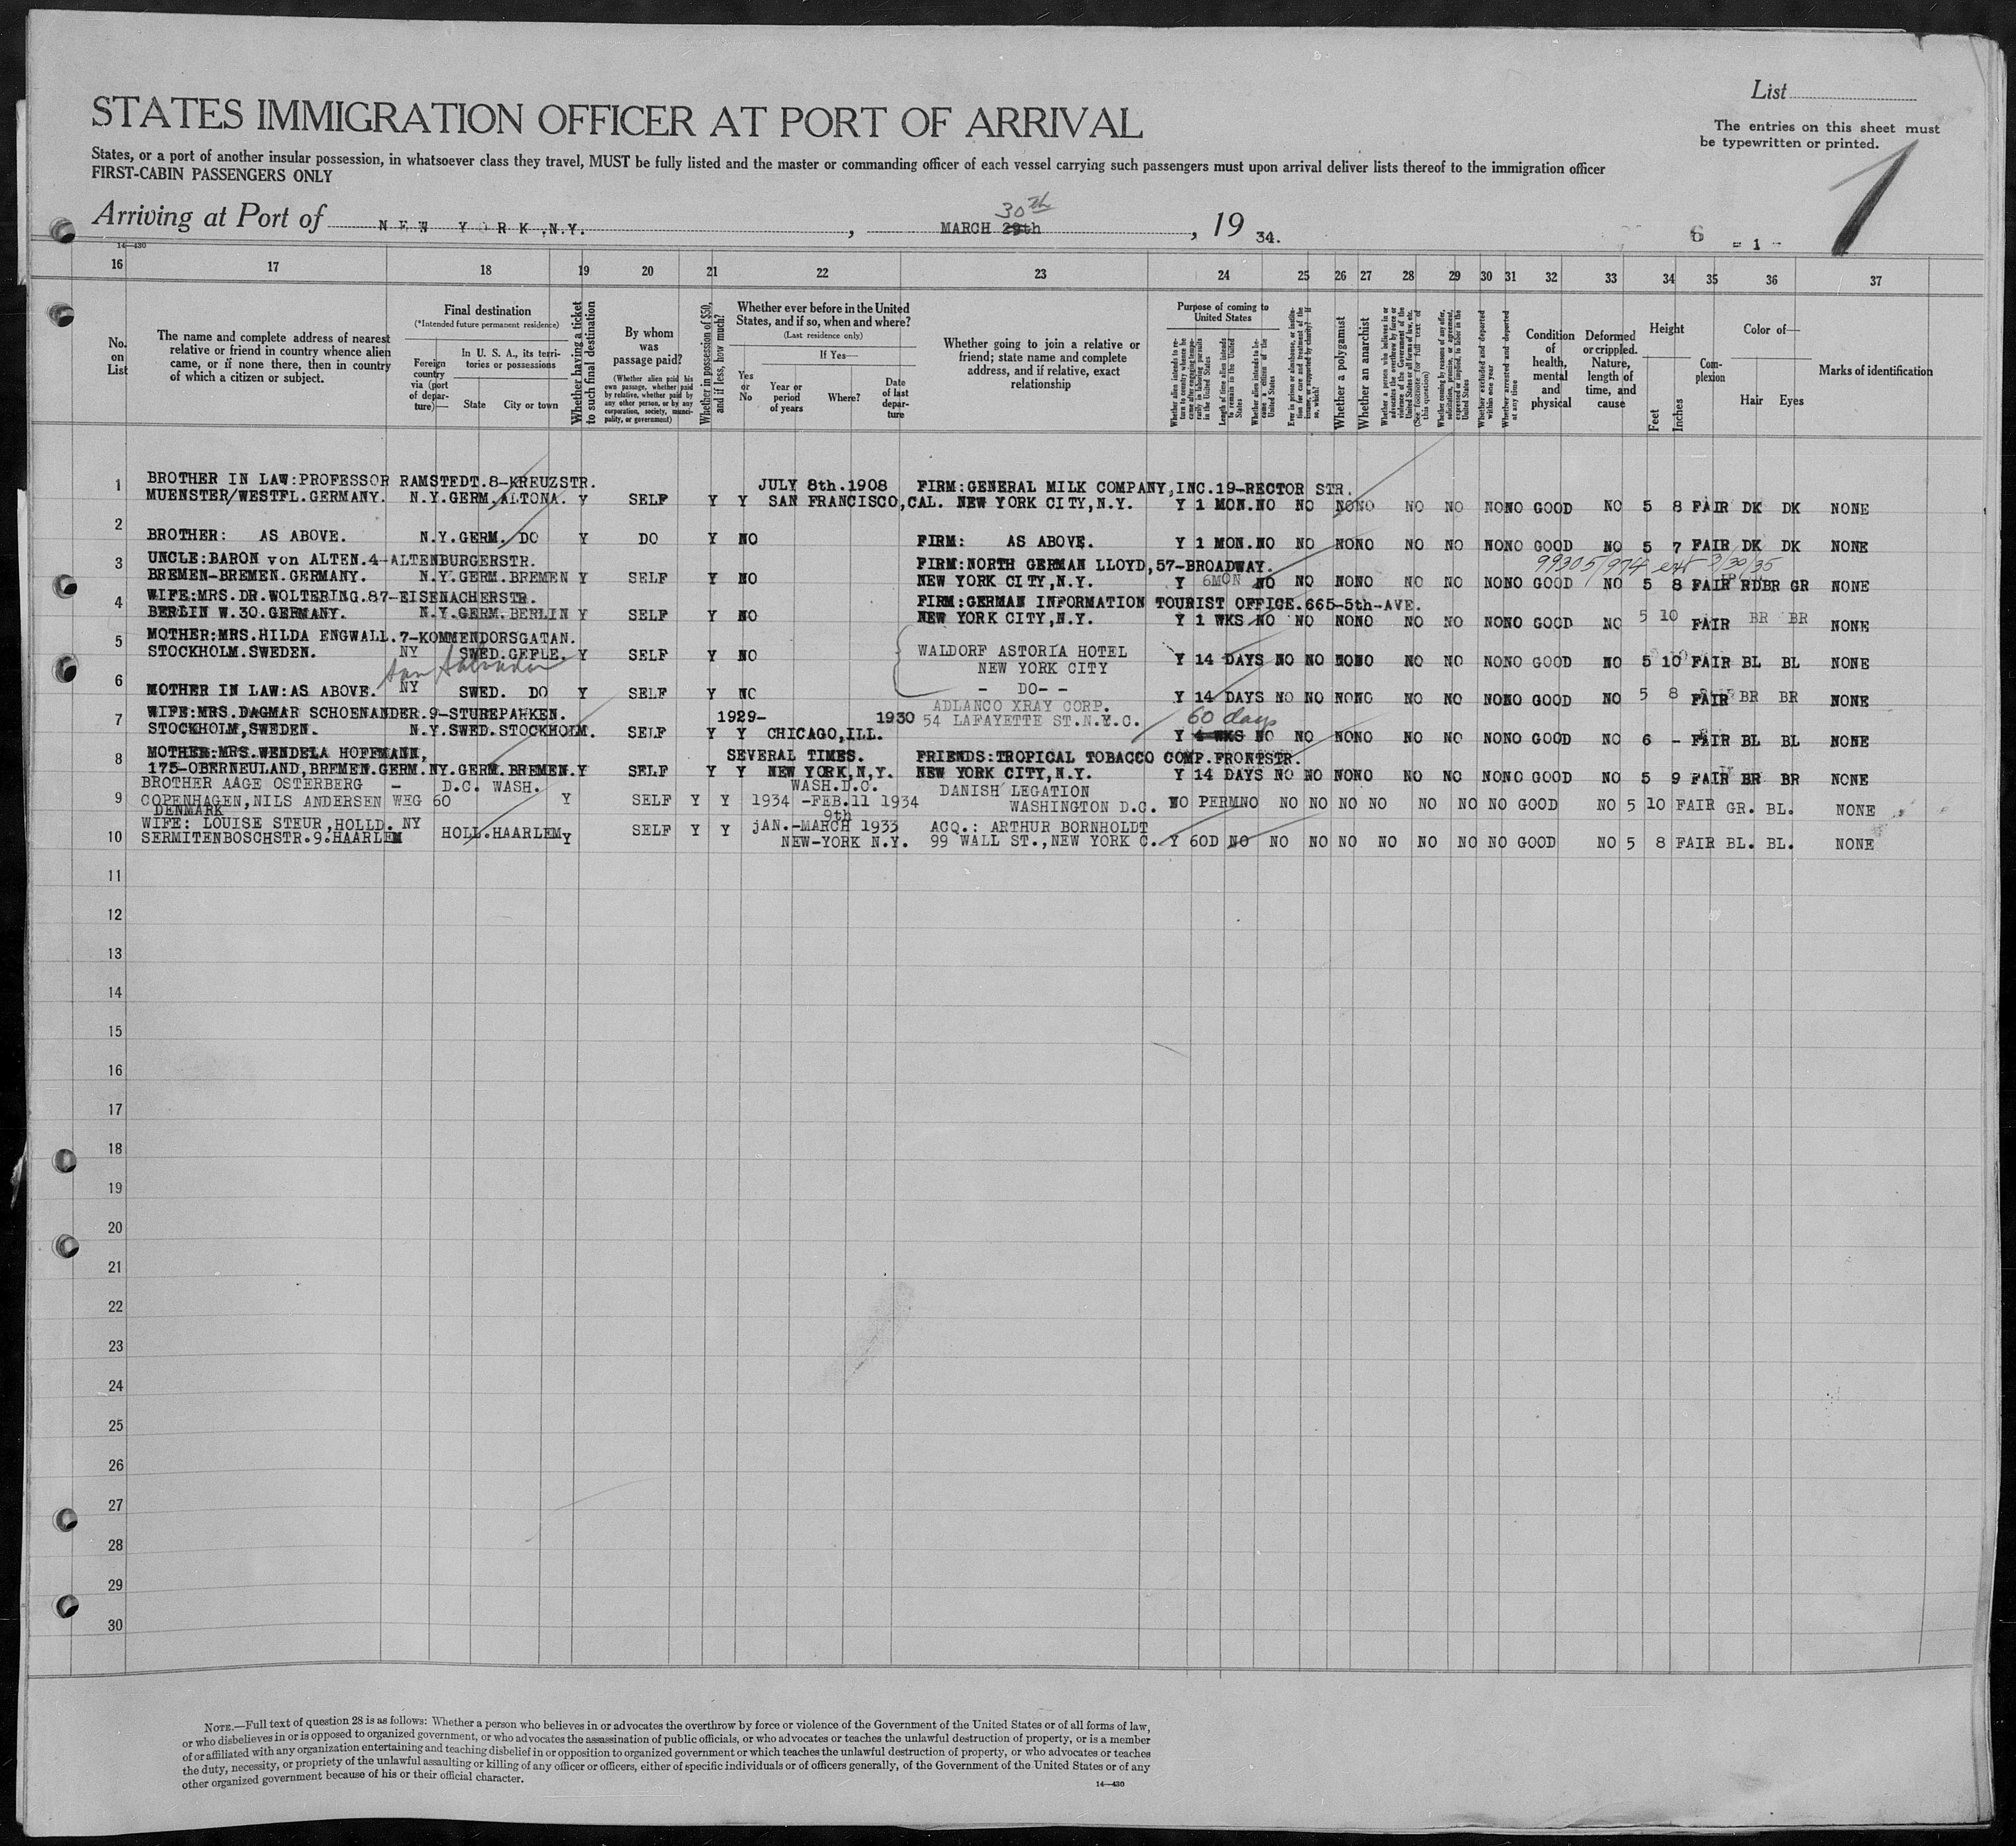 List
The entries on this sheet must
be typewritten or printed.
STATES IMMIGRATION OFFICER AT PORT OF ARRIVAL
States, or a port of another insular possession, in whatsoever class they travel, MUST be fully listed and the master or commanding officer of each vessel carrying such passengers must upon arrival deliver lists thereof to the immigration officer
FIRST-CABIN PASSENGERS ONLY
1
Arriving at Port of NEW YORK,N.Y. , MARCH 29th 30th , 19 34.
6 - 1 -
14—430
16 17 18 19 20 21 22 23 24 25 26 27 28 29 30 31 32 33 34 35 36 37
No. on List
The name and complete address of nearest relative or friend in country whence alien came, or if none there, then in country of which a citizen or subject.
Final destination
(*Intended future permanent residence)
Foreign country via (port of departure)—
In U. S. A., its territories or possessions
State City or town
Whether having a ticket to such final destination
By whom was passage paid?
(Whether alien paid his own passage, whether paid by relative, whether paid by any other person, or by any corporation, society, municipality, or government)
Whether in possession of $50, and if less, how much?
Whether ever before in the United States, and if so, when and where?
(Last residence only)
If Yes—
Yes or No
Year or period of years
Where?
Date of last departure
Whether going to join a relative or friend; state name and complete address, and if relative, exact relationship
Purpose of coming to United States
Whether alien intends to return to country whence he came after engaging temporarily in laboring pursuits in the United States
Length of time alien intends to remain in the United States
Whether alien intends to become a citizen of the United States
Ever in prison or almshouse, or institution for care and treatment of the insane, or supported by charity? If so, which?
Whether a polygamist
Whether an anarchist
Whether a person who believes in or advocates the overthrow by force or violence of the Government of the United States or all forms of law, etc. (See footnote for full text of this question)
Whether coming by reason of any offer, solicitation, promise, or agreement, expressed or implied, to labor in the United States
Whether excluded and deported within one year
Whether arrested and deported at any time
Condition of health, mental and physical
Deformed or crippled. Nature, length of time, and cause
Height
Feet Inches
Complexion
Color of—
Hair Eyes
Marks of identification
1 BROTHER IN LAW:PROFESSOR RAMSTEDT.8-KREUZSTR. JULY 8th.1908 FIRM:GENERAL MILK COMPANY,INC.19-RECTOR STR.
MUENSTER/WESTFL.GERMANY. N.Y.GERM.ALTONA. Y SELF Y Y SAN FRANCISCO,CAL. NEW YORK CITY,N.Y. Y 1 MON.NO NO NONO NO NO NONO GOOD NO 5 8 FAIR DK DK NONE
2 BROTHER: AS ABOVE. N.Y.GERM. DO Y DO Y NO FIRM: AS ABOVE. Y 1 MON.NO NO NONO NO NO NONO GOOD NO 5 7 FAIR DK DK NONE
3 UNCLE:BARON von ALTEN.4-ALTENBURGERSTR. FIRM:NORTH GERMAN LLOYD,57-BROADWAY. 99305/974 ext 9/30/35
BREMEN-BREMEN.GERMANY. N.Y.GERM.BREMEN Y SELF Y NO NEW YORK CITY,N.Y. Y 6MON NO NO NONO NO NO NONO GOOD NO 5 8 FAIR RDBR GR NONE
4 WIFE:MRS.DR.WOLTERING.87-EISENACHERSTR. FIRM:GERMAN INFORMATION TOURIST OFFICE.665-5th-AVE.
BERLIN W.30.GERMANY. N.Y.GERM.BERLIN Y SELF Y NO NEW YORK CITY,N.Y. Y 1 WKS NO NO NONO NO NO NONO GOOD NO 5 10 FAIR BR BR NONE
5 MOTHER:MRS.HILDA ENGWALL.7-KOMMENDORSGATAN.
STOCKHOLM.SWEDEN. NY SWED.GEFLE. Y SELF Y NO WALDORF ASTORIA HOTEL
NEW YORK CITY Y 14 DAYS NO NO NONO NO NO NONO GOOD NO 5 10 FAIR BL BL NONE
San Salvador
6 MOTHER IN LAW:AS ABOVE. NY SWED. DO Y SELF Y NO - DO- - Y 14 DAYS NO NO NONO NO NO NONO GOOD NO 5 8 FAIR BR BR NONE
7 WIFE:MRS.DAGMAR SCHOENANDER.9-STUREPARKEN. 1929- 1930 ADLANCO XRAY CORP.
54 LAFAYETTE ST.N.Y.C. 60 days
STOCKHOLM,SWEDEN. N.Y.SWED.STOCKHOLM. SELF Y Y CHICAGO,ILL. Y 4 WKS NO NO NONO NO NO NONO GOOD NO 6 - FAIR BL BL NONE
8 MOTHER:MRS.WENDELA HOFFMANN, SEVERAL TIMES. FRIENDS:TROPICAL TOBACCO COMP.FRONTSTR.
175-OBERNEULAND,BREMEN.GERM.NY.GERM.BREMEN.Y SELF Y Y NEW YORK,N,Y. NEW YORK CITY,N.Y. Y 14 DAYS NO NO NONO NO NO NONO GOOD NO 5 9 FAIR BR BR NONE
9 BROTHER AAGE OSTERBERG - D.C. WASH. WASH.D.C. DANISH LEGATION
COPENHAGEN,NILS ANDERSEN WEG 60 Y SELF Y Y 1934 -FEB.11 1934 WASHINGTON D.C. NO PERMNO NO NO NO NO NO NO GOOD NO 5 10 FAIR GR. BL. NONE
DENMARK
10 WIFE: LOUISE STEUR,HOLLD. NY HOLL.HAARLEMY SELF Y Y 9th
jAN.-MARCH 1933 ACQ.: ARTHUR BORNHOLDT
SERMITENBOSCHSTR.9.HAARLEM NEW-YORK N.Y. 99 WALL ST.,NEW YORK C. Y 60D NO NO NO NO NO NO NO NO GOOD NO 5 8 FAIR BL. BL. NONE
11
12
13
14
15
16
17
18
19
20
21
22
23
24
25
26
27
28
29
30
NOTE.—Full text of question 28 is as follows: Whether a person who believes in or advocates the overthrow by force or violence of the Government of the United States or of all forms of law,
or who disbelieves in or is opposed to organized government, or who advocates the assassination of public officials, or who advocates or teaches the unlawful destruction of property, or is a member
of or affiliated with any organization entertaining and teaching disbelief in or opposition to organized government or which teaches the unlawful destruction of property, or who advocates or teaches
the duty, necessity, or propriety of the unlawful assaulting or killing of any officer or officers, either of specific individuals or of officers generally, of the Government of the United States or of any
other organized government because of his or their official character.
14—430